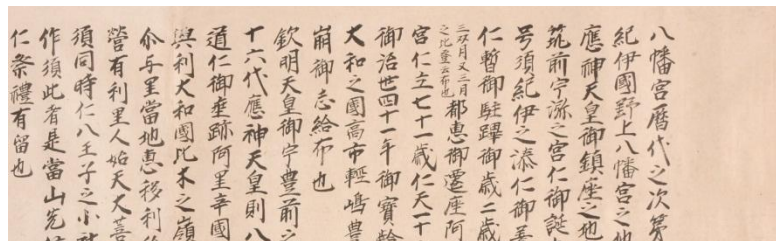 八幡宮暦代之次第
紀伊國野上八幡宮之他
應神天皇御鎮座之地
筑前宇流之宮仁御誕
号須紀伊之湊仁御着
仁暫御駐蹕御歳二歳
三双月又三月
之比登云布也
都恵御遷座阿
宮仁立七十一歳仁天一十
御治世四十一年御寳齢
大和之國高市軽嶋豊
崩御志給布也
欽明天皇御宇豊前之
十六代應神天皇則八
道仁御垂跡阿里辛國
與利大和國比木之嶺
尓与里當地恵移利
營有利里人始天大菩
須同時仁八王子之小社
作須此者是當山先
仁祭禮有留也